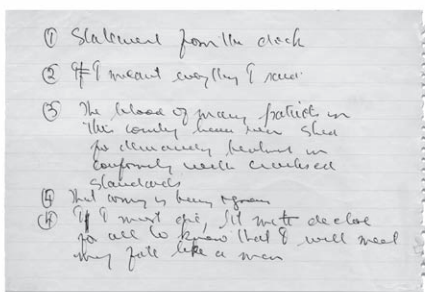 ① Statement from the dock
② I meant everything I said
③ The blood of many patriots in
this country has been shed
for demanding treatment in
conformity with civilised
standards
④ That army is being
④ If I must die, let me declare
for all to know that I will meet
my fate like a man